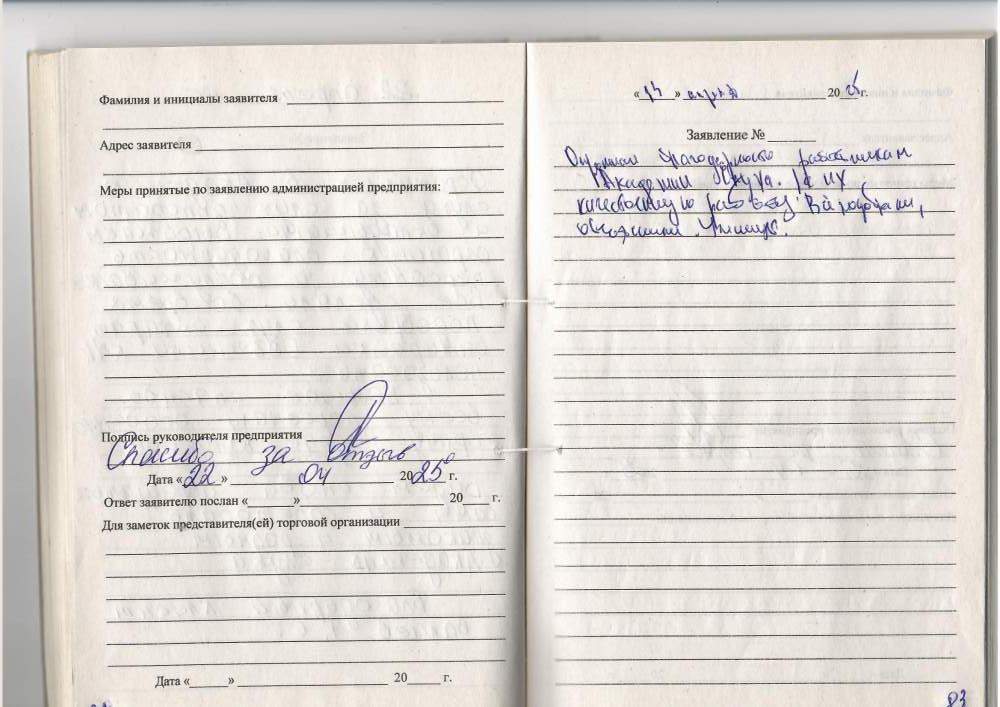 Фамилия и инициалы заявителя
Адрес заявителя
Меры принятые по заявлению администрацией предприятия:
Подпись руководителя предприятия
Спасибо за отзыв
Дата «22» 04 2025 г.
Ответ заявителю послан «      »            20    г.
Для заметок представителя(ей) торговой организации
Дата «      »            20    г.
«14» апреля 2025 г.
Заявление №
благодарность работникам
Академии за их
качественную работу.
83